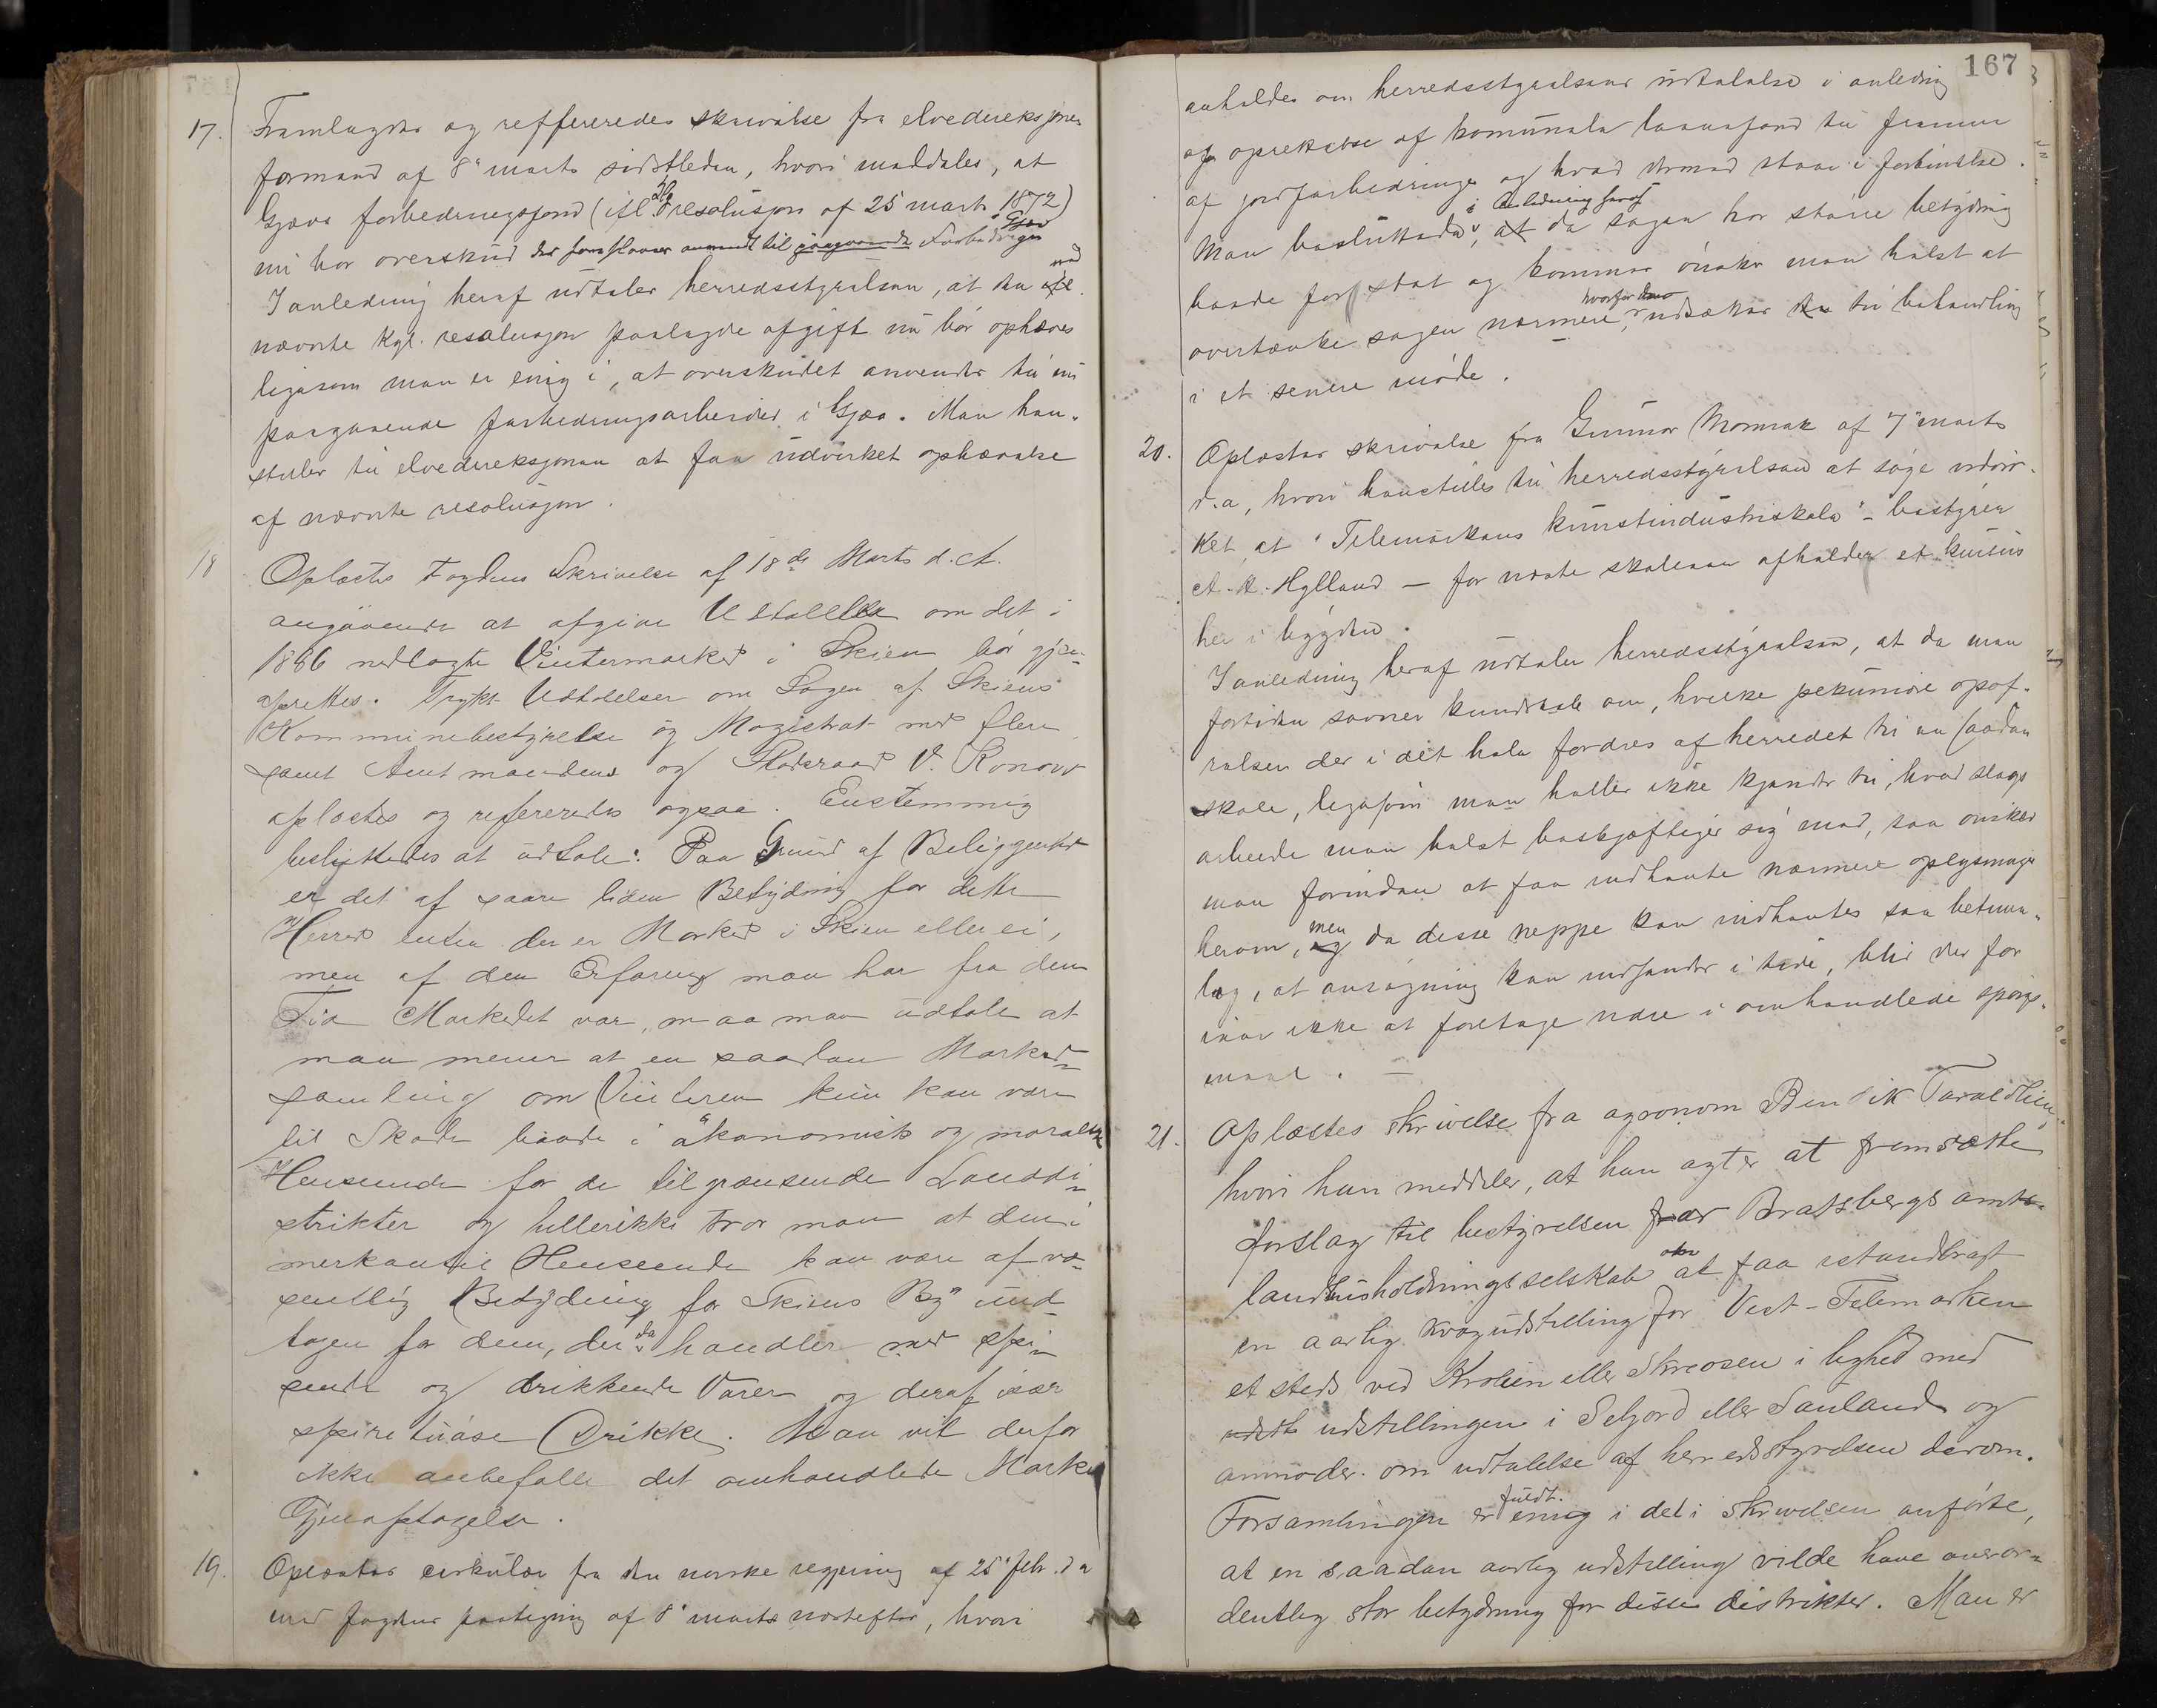 17. Framlagdes og reffereredes skrivelse fra elvedireksjonens
formand af 8de marts sidstleden, hvori meddeles, at
Gjøvs forbedringsfond (ifl. kgl. resolusjon af 25 marts 1872)
nu har overskud der foreslaaes anvendt til paagaaende Forbedringer i Gjøv
I anledning heraf udtaler herredsstyrelsen, at den ved
nævnte kgl. resolusjon paalagde afgift nu bør ophæves
ligesom man er enig i, at overskudet anvendes til nu
paagaaende forbedringsarbeider i Gjøv. Man hen-
stiller til elvedireksjonen at faa udvirket ophævelse
af nævnte resolusjon.
18 Oplæstes Fogdens Skrivelse af 18de Marts d. A.
angaaende at afgive Udtalelse om det i
1886 nedlagte Vintermarked i Skien bør gjen-
oprettes. Trykt Udtalelser om Sagen af Skiens
Kommunebestyrelse og Magistrat med flere
samt Amtmandens og Statsraad V. Konow
oplæstes og refereredes ogsaa. Enstemmig
besluttedes at udtale: Paa Grund af Beliggenhed
er det af saare liden Betydning for dette
Herred enten der er Marked i Skien eller ei,
men af den Erfaring man har fra den
Tid Markedet var, maa man udtale at
man mener at en saadan Marked-
samling om Vinteren kun kan være
til Skade baade i økonomisk og moralsk
Henseende for de tilgrænsende Landdi-
strikter og hellerikke tror man at den i
merkantil Henseende kan være af væ-
sentlig Betydning for Skiens By und-
tagen for dem, der da handler med spi-
sende og drikkende Varer og deraf især
spirituøse Drikke. Man vil derfor
ikke anbefale det omhandlede Marked
Gjenoptagelse.
19. Oplæstes cirkulær fra den norske regjering af 25 febr. d a
med fogdens paategning af 8de marts næstefter, hvori
167
anholdes om herredsstyrelsens udtalelse i anledning
af oprettelse af komunale laanefond til fremme
af jordforbedringer og hvad dermed staar i forbindelse.
Man besluttede i Anledning heraf, at da sagen har større betydning
baade for stat og kommune ønsker man helst at
overtænke sagen nærmere, hvorfor den udsættes til behandling
i et senere møde.
20. Oplæstes skrivelse fra Gunnar Mormrak af 7de marts
d. a, hvori henstilles til herredsstyrelsen at søge udvir-
ket at "Telemarkens kunstindustriskole" - bestyrer
A. K. Hylland — for næste skoleaar afholder et kursus
her i bygden.
I anledning heraf udtaler herredsstyrelsen, at da man
fortiden savner kundskab om, hvilke pekuniære opof-
relser der i det hele fordres af herredet til en saadan
skole, ligesom man heller ikke kjender til, hvad slags
arbeide man helst beskjæftiger sig med, saa ønsker
man forinden at faa indhente nærmere oplysninger
herom, men da disse neppe kan indhentes saa betime-
lig, at ansøgning kan indsendes i tide, blir der for
iaar ikke at foretage videre i omhandlede spørgs-
maal. —
21. Oplæstes skrivelse fra agronom Bendik Taraldlien,
hvori han meddeler, at han agter at fremsætte
forslag til bestyrelsen for Bratsbergs amts
landhusholdningsselskab om at faa istandbragt
en aarlig kvægudstilling for Vest-Telemarken
et steds ved Kroken eller Skreosen i lighed med
udstillingen i Seljord eller Sauland og
anmoder om udtalelse af herredsstyrelsen derom.
Forsamlingen er fuldt enig i det i skrivelsen anførte,
at en saadan aarlig udstilling vilde have overor-
dentlig stor betydning for disse distrikter. Man er